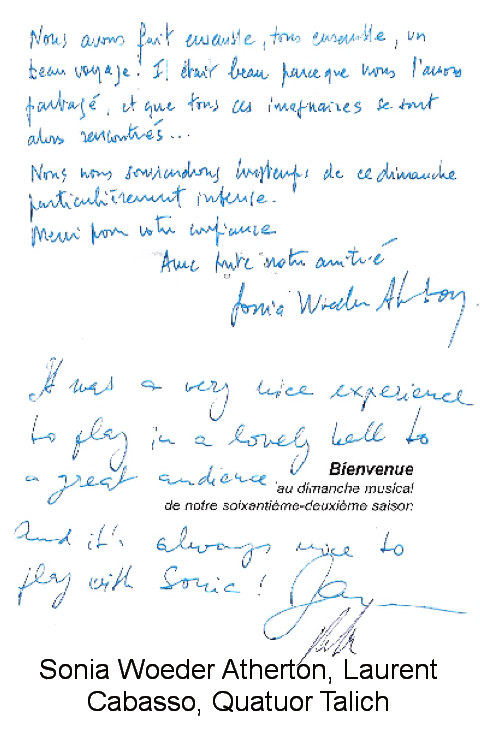 Nous avons fait ensemble, tous ensemble, un
beau voyage. Il était beau parce que nous l'avons
partagé, et que tous ces imaginaires se sont
alors rencontrés...
Nous nous souviendrons longtemps de ce dimanche
particulièrement intense.
Merci pour votre confiance
Avec toute notre amitié
Sonia Wieder Atherton.
It was a very nice experience
to play in a lovely hall to
a great audience.
Bienvenue
au dimanche musical
de notre soixantième-deuxième saison
And it's always nice to
play with Sonia!
Sonia Woeder Atherton, Laurent
Cabasso, Quatuor Talich